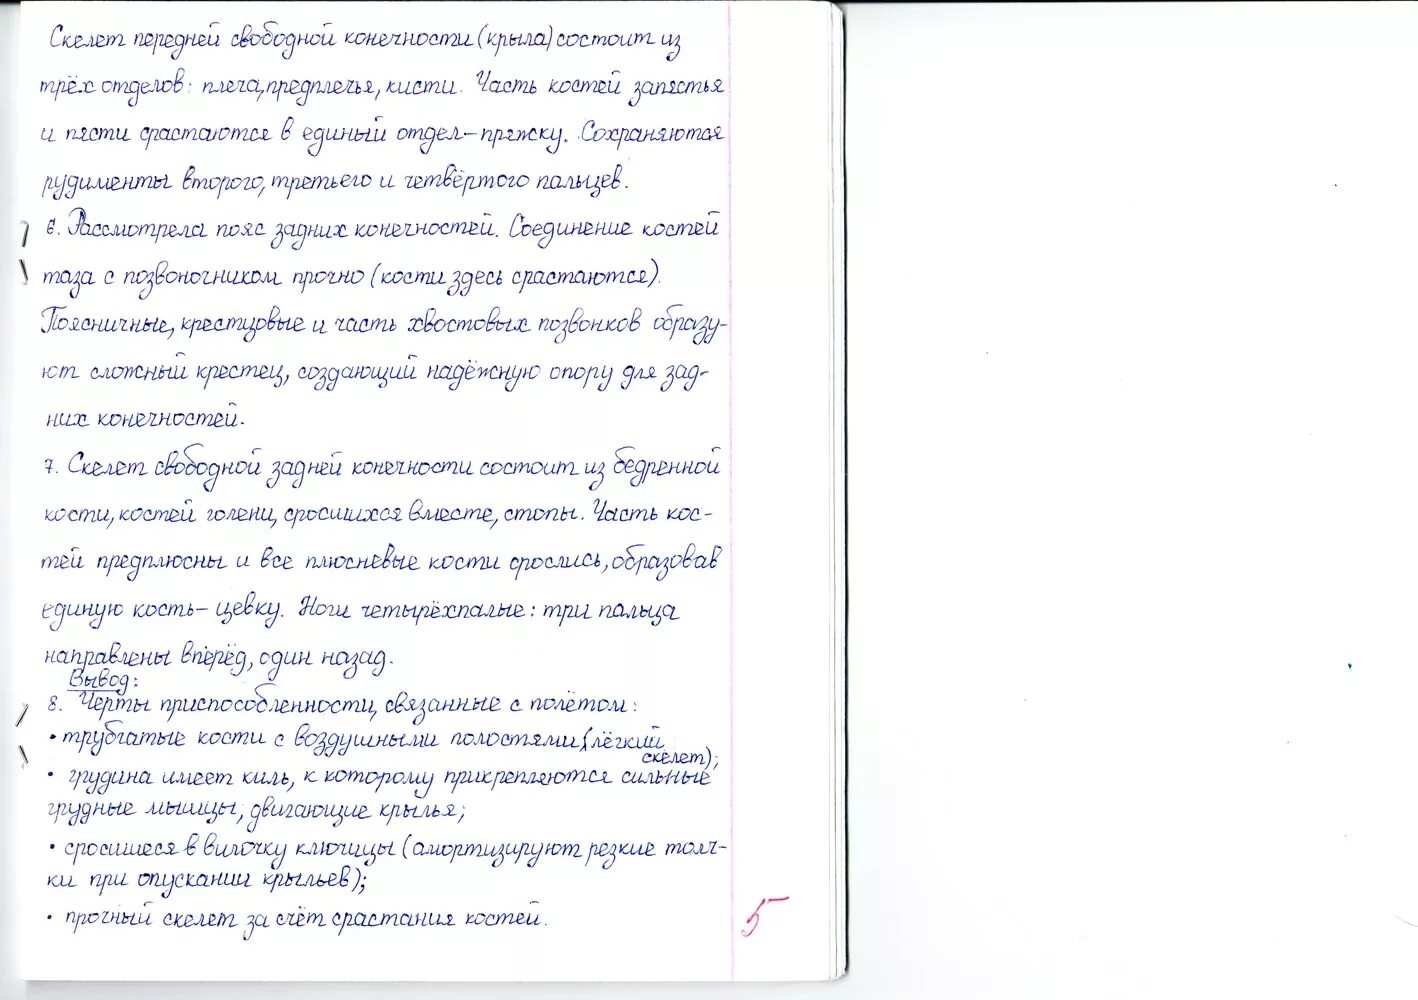 Скелет передней свободной конечности (крыла) состоит из
трёх отделов: плеча, предплечья, кисти. Часть костей запястья
и пясти срастаются в единый отдел – пряжку. Сохраняются
рудименты второго, третьего и четвёртого пальцев.
6. Рассмотрела пояс задних конечностей. Соединение костей
таза с позвоночником прочно (кости здесь срастаются).
Поясничные, крестцовые и часть хвостовых позвонков образу-
ют сложный крестец, создающий надёжную опору для зад-
них конечностей.
7. Скелет свободной задней конечности состоит из бедренной
кости, костей голени, сросшихся вместе, стопы. Часть кос-
тей предплюсны и все плюсневые кости срослись, образовав
единую кость – цевку. Ноги четырёхпалые: три пальца
направлены вперёд, один назад.
Вывод:
8. Черты приспособленности, связанные с полётом:
• трубчатые кости с воздушными полостями (лёгкий
скелет);
• грудина имеет киль, к которому прикрепляются сильные
грудные мышцы, двигающие крылья;
• сросшиеся в вилочку ключицы (амортизируют резкие толч-
ки при опускании крыльев);
• прочный скелет за счёт срастания костей.
5